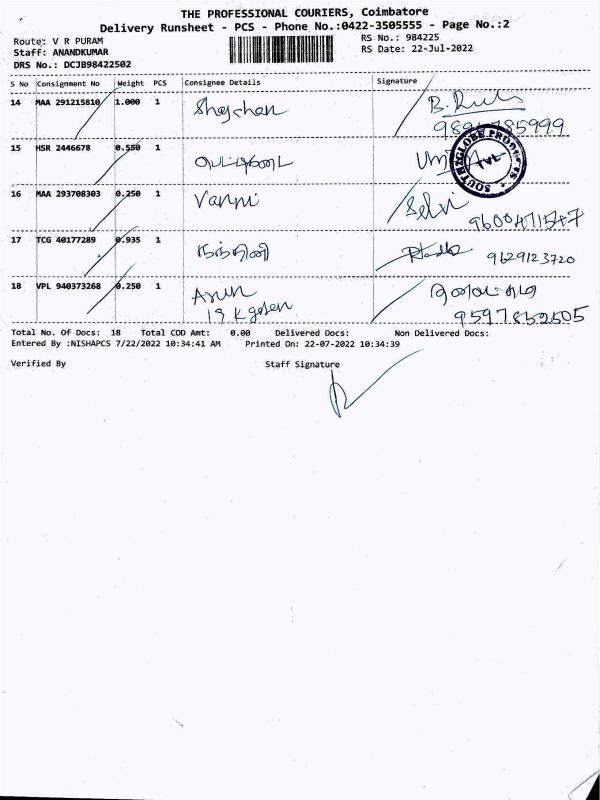 THE PROFESSIONAL COURIERS, Coimbatore
Delivery Runsheet - PCS - Phone No.:0422-3505555 - Page No.:2
Route: V R PURAM
RS No.: 984225
Staff: ANANDKUMAR
RS Date: 22-Jul-2022
DRS No.: DCJB98422502
S No Consignment No Weight PCS Consignee Details Signature
14 MAA 291215810 1.000 1
15 HSR 2446678 0.550 1
SOUTH GLOBE PRODUCTS
16 MAA 293708303 0.250 1 Vanni Selvi
9600471547
17 TCG 40177289 0.935 1 நந்தினி 9629123720
18 VPL 940373268 0.250 1 Arun
9597852605
Total No. Of Docs: 18 Total COD Amt: 0.00 Delivered Docs: Non Delivered Docs:
Entered By :NISHAPCS 7/22/2022 10:34:41 AM Printed On: 22-07-2022 10:34:39
Verified By Staff Signature